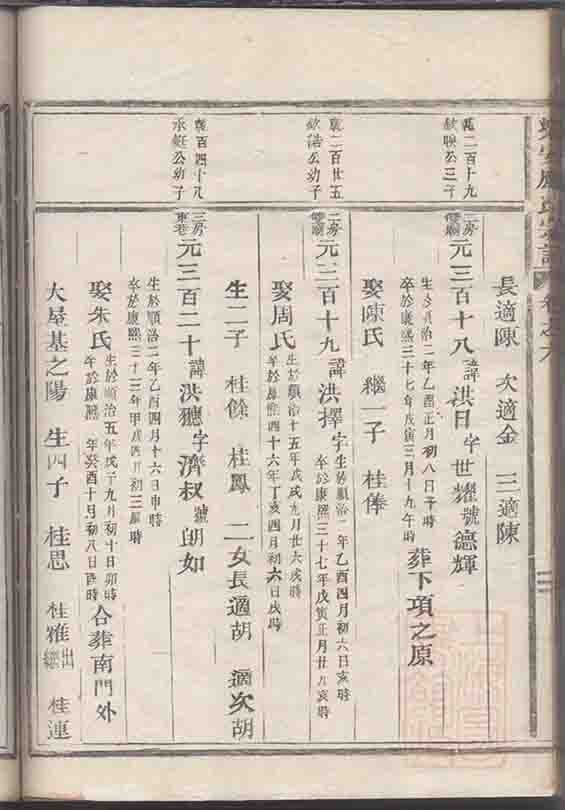 長適陳 次適金 三適陳
二百十九
欽映公三子
二房雙廟
元三百十八諱洪日字世耀號德輝
生於順治二年乙酉正月初八日子時
卒於康熙三十七年戊寅三月十九午時
葬下項之原
娶陳氏 繼一子 桂俸
襄二百廿五
欽浩公幼子
二房雙廟
元三百十九諱洪擇字
生於順治二年乙酉四月初六日亥時
卒於康熙三十七年戊寅正月廿八亥時
娶周氏
生於順治十五年戊戌九月廿六戌時
卒於康熙四十六年丁亥四月初六日戌時
生二子 桂餘 桂鳳 二女長適胡 適次胡
襄百四十八
承鋌公幼子
三房東巷
元三百二十諱洪 字濟叔號朗如
生於順治二年乙酉四月十六日申時
卒於康熙三十三年甲戌四月初三辰時
娶朱氏
生於順治五年戊子九月初十日卯時
卒於康熙 年癸酉十月初八日酉時
合葬南門外
大屋基之陽 生四子 桂思 桂雅出繼 桂連